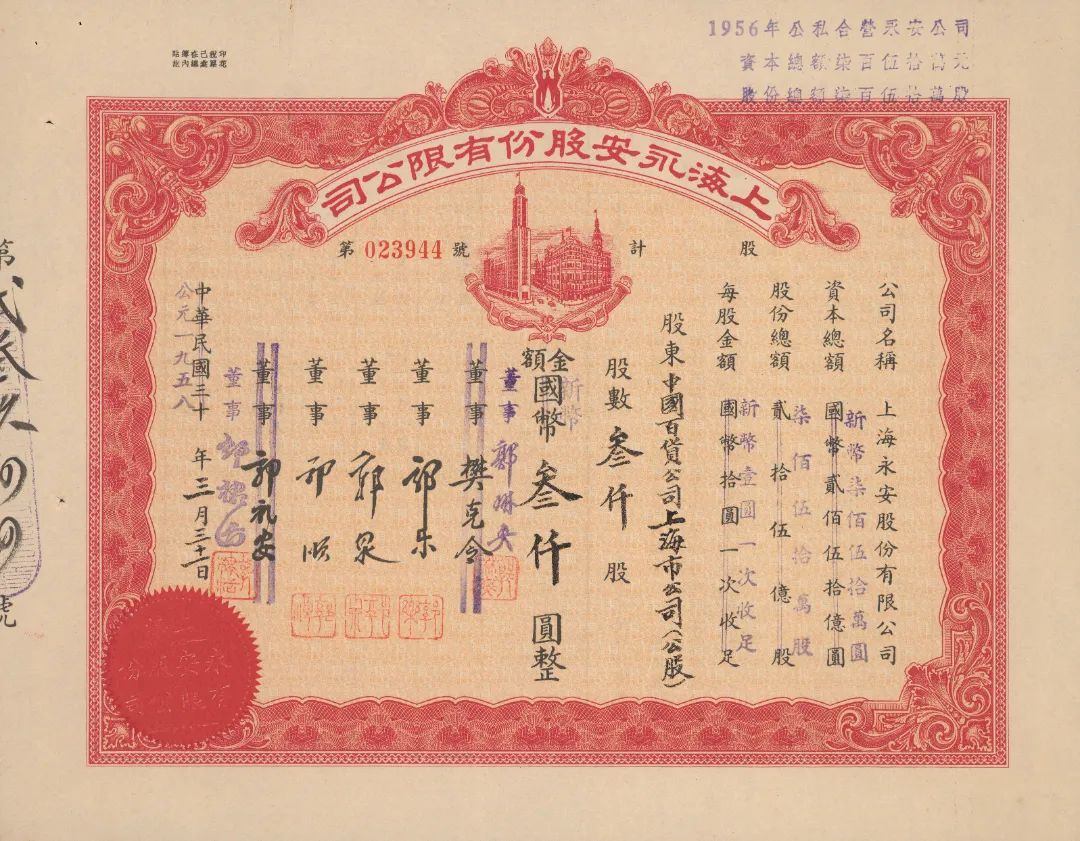 1956年公私合營永安公司
資本總額柒百伍拾萬元
股份總額柒百伍拾萬股
印花稅已在總
處彙繳訖
上海永安股份有限公司
第 023944 號
計 股
公司名稱 上海永安股份有限公司
資本總額 國幣貳佰伍拾億圓
新幣柒佰伍拾萬圓
股份總額 貳拾伍億股
柒佰伍拾萬股
每股金額 國幣拾圓一次收足
新幣壹圓一次收足
股東 中國百貨公司上海市公司(公股)
股數 叁仟 股
金額 國幣 叁仟 圓整
新幣
董事 郭琳爽
董事 樊克令
董事 郭乐
董事 郭泉
董事 郭順
董事 郭礼安
董事
中華民國三十 年三月三十一日
公元一九五八
第
號